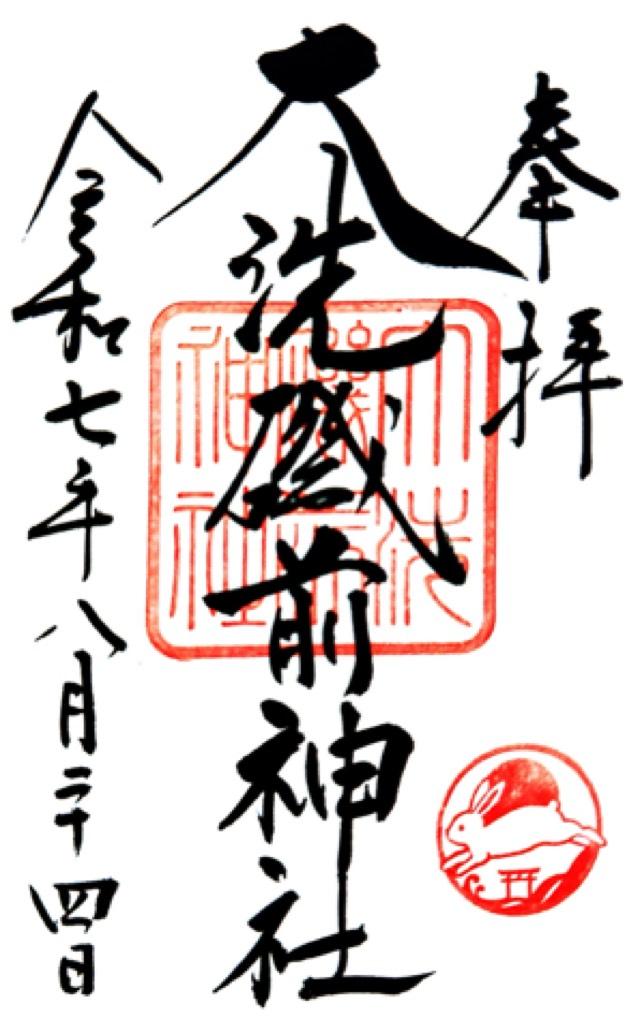 奉拝
大洗磯前神社
令和七年八月二十四日
大洗
磯前
神社